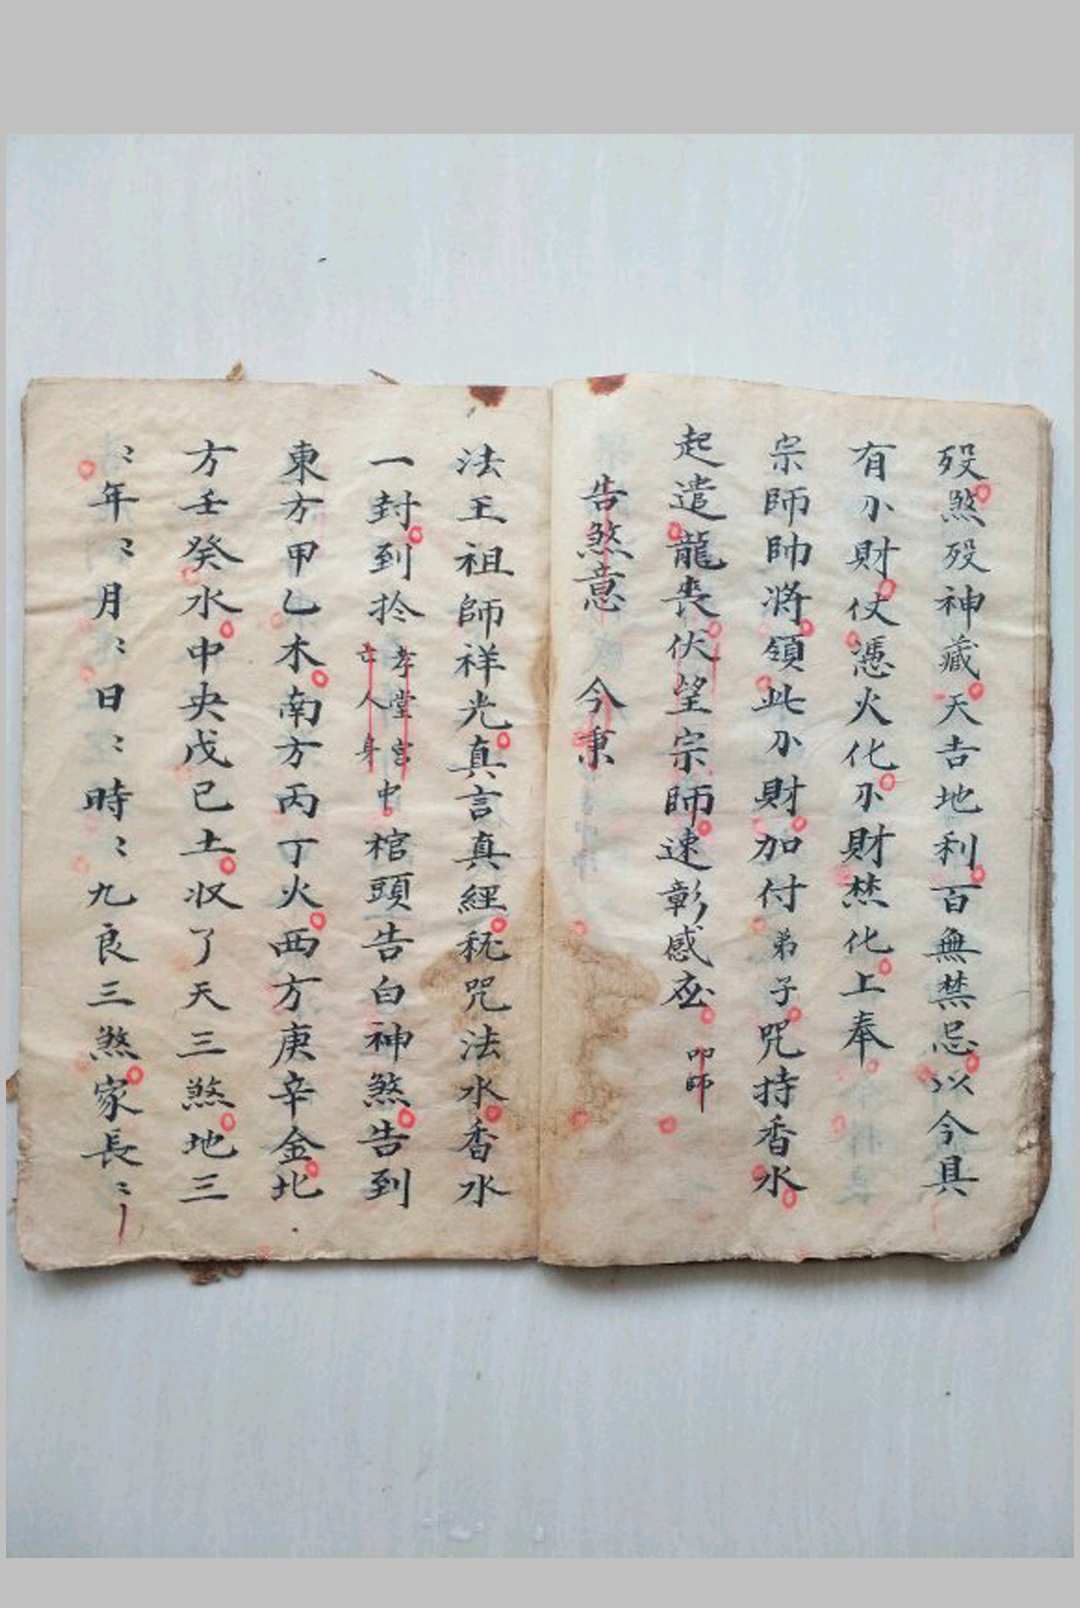 殁煞殁神藏天吉地利百無禁忌以今具
有小財仗憑火化小財焚化上奉
宗師帥將領此小財加付弟子咒持香水
起遣龍喪伏望宗師速彰感应叩師
告煞意 今秉
法王祖師祥光真言真經秘咒法水香水
一封到於孝堂宫亡人身中棺頭告白神煞告到
東方甲乙木南方丙丁火西方庚辛金北
方壬癸水中央戊己土收了天三煞地三
:年:月:日:時:九良三煞家長: